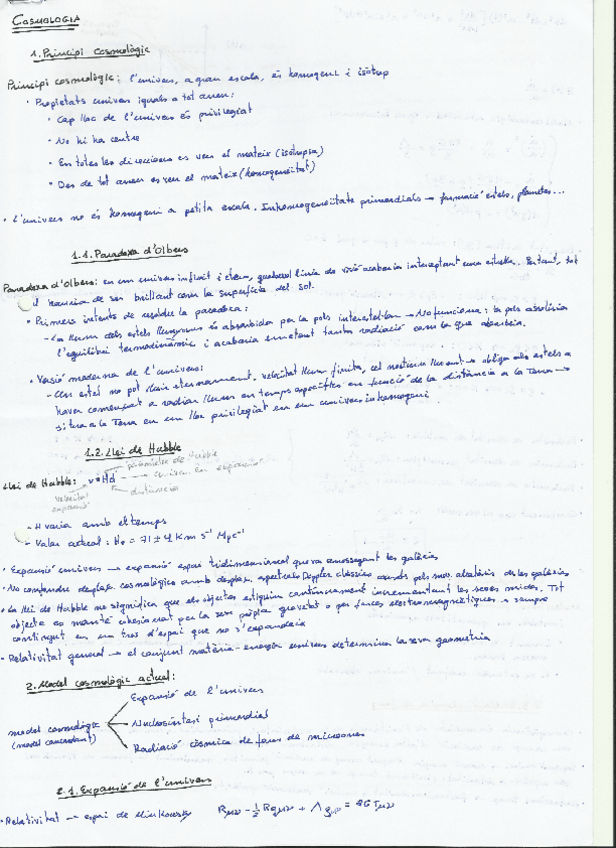 COSMOLOGIA
1. Principi cosmològic
Principi cosmològic: l'univers, a gran escala, és homogeni i isòtrop
· Propietats univers iguals a tot arreu:
· Cap lloc de l'univers és privilegiat
· No hi ha centre
· En totes les direccions es veu el mateix (isotropia)
· Des de tot arreu es veu el mateix (homogeneïtat)
· L'univers no és homogeni a petita escala. Inhomogeneïtats primordials → formació estels, planetes...
1.1. Paradoxa d'Olbers
Paradoxa d'Olbers: en un univers infinit i etern, qualsevol línia de visió acabaria interceptant una estrella. Per tant, tot
el hauria de ser brillant com la superfície del sol.
· Primers intents de resoldre la paradoxa:
- La llum dels estels llunyans és absorbida per la pols interestel·lar → No funciona: la pols assoliria
l'equilibri termodinàmic i acabaria emetent tanta radiació com la que absorbia.
· Versió moderna de l'univers:
- Un estel no pot lluir eternament, velocitat llum finita, cel nocturn → obliga als estels a
haver començat a radiar llum en temps específics en funció de la distància a la Terra →
situa a la Terra en un lloc privilegiat en un univers inhomogeni
1.2. Llei de Hubble
paràmetre de Hubble
Llei de Hubble: v = Hd univers en expansió
velocitat distància
expansió
- H varia amb el temps
- Valor actual: H₀ = 71 ± 4 Km s⁻¹ Mpc⁻¹
· Expansió univers → expansió espai tridimensional que va arrossegant les galàxies
· No confondre desplaç. cosmològic amb desplaç. espectrals Doppler clàssics causats pels mov. de les galàxies
· La llei de Hubble no significa que els objectes estiguin contínuament incrementant les seves mides. Tot
objecte es manté cohesionat per la seva pròpia gravetat o per forces electromagnètiques i sempre
contingut en un tros d'espai que no s'expandeix
· Relativitat general → el conjunt matèria-energia univers determina la seva geometria
2. Model cosmològic actual:
Expansió de l'univers
model cosmològic Nucleosíntesi primordial
(model concordant)
Radiació còsmica de fons de microones
2.1. Expansió de l'univers
· Relativitat → espai de Minkowsky Rμν - ½Rgμν + Λgμν = 8G Tμν